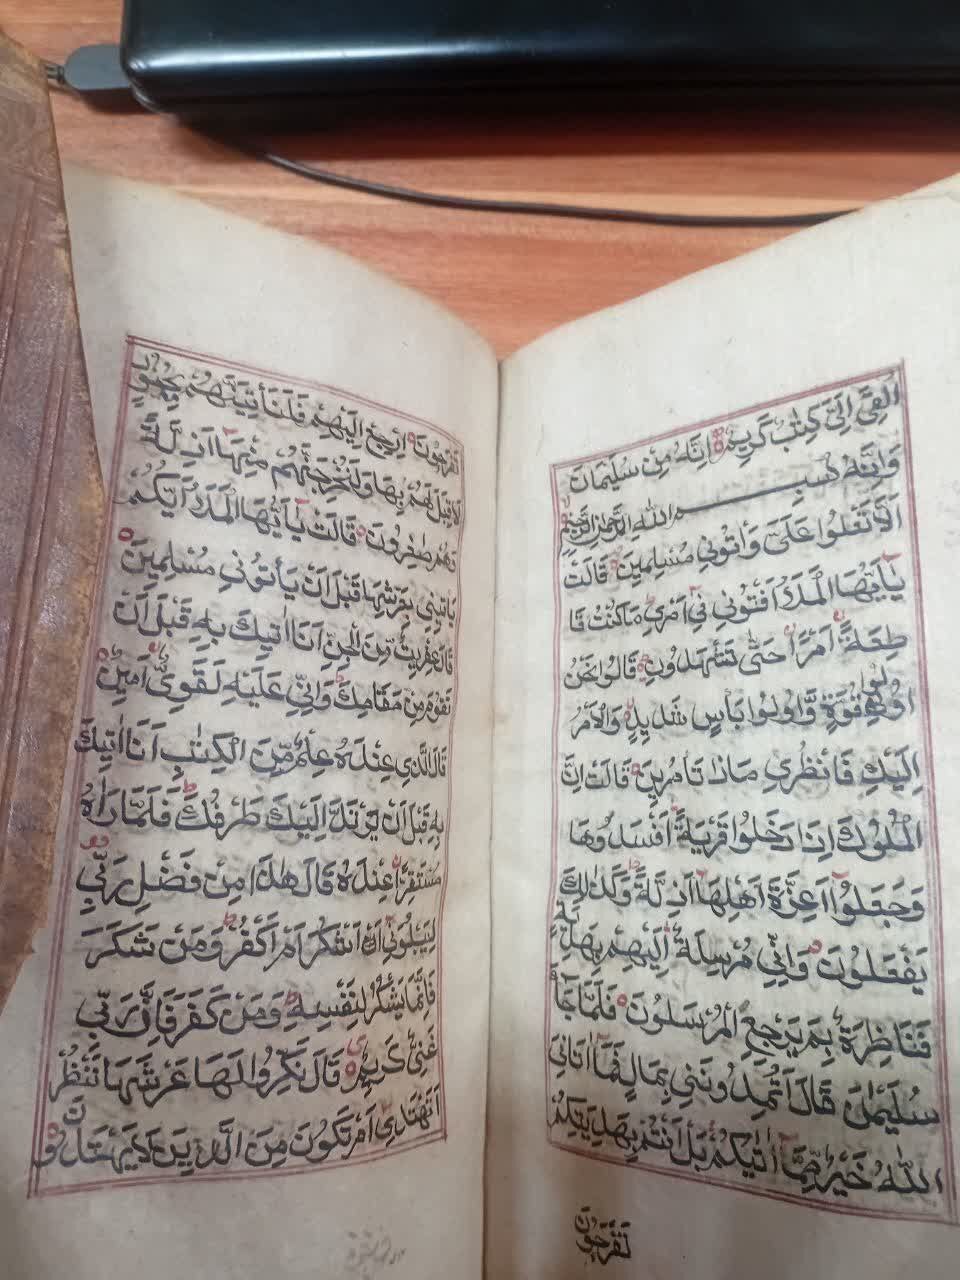 اُلْقِيَ اِلَيَّ كِتٰبٌ كَرِيْمٌ اِنَّهٗ مِنْ سُلَيْمَانَ
وَاِنَّهٗ بِسْمِ اللهِ الرَّحْمٰنِ الرَّحِيْمِ
اَلَّا تَعْلُوْا عَلَيَّ وَأْتُوْنِيْ مُسْلِمِيْنَ قَالَتْ
يٰاَيُّهَا الْمَلَؤُا اَفْتُوْنِيْ فِيْ اَمْرِيْ مَا كُنْتُ قَا
طِعَةً اَمْرًا حَتّٰى تَشْهَدُوْنِ قَالُوْا نَحْنُ
اُولُوْا قُوَّةٍ وَّاُولُوْا بَأْسٍ شَدِيْدٍ وَالْاَمْرُ
اِلَيْكِ فَانْظُرِيْ مَاذَا تَأْمُرِيْنَ قَالَتْ اِنَّ
الْمُلُوْكَ اِذَا دَخَلُوْا قَرْيَةً اَفْسَدُوْهَا
وَجَعَلُوْا اَعِزَّةَ اَهْلِهَا اَذِلَّةً وَكَذٰلِكَ
يَفْعَلُوْنَ وَاِنِّيْ مُرْسِلَةٌ اِلَيْهِمْ بِهَدِيَّةٍ
فَنَاظِرَةٌ بِمَ يَرْجِعُ الْمُرْسَلُوْنَ فَلَمَّا جَآءَ
سُلَيْمٰنَ قَالَ اَتُمِدُّوْنَنِيْ بِمَالٍ فَمَا اٰتَانِيَ
اللهُ خَيْرٌ مِّمَّا اٰتٰيكُمْ بَلْ اَنْتُمْ بِهَدِيَّتِكُمْ
تَفْرَحُوْنَ
تَفْرَحُوْنَ اِرْجِعْ اِلَيْهِمْ فَلَنَأْتِيَنَّهُمْ بِجُنُوْدٍ
لَا قِبَلَ لَهُمْ بِهَا وَلَنُخْرِجَنَّهُمْ مِنْهَا اَذِلَّةً
وَهُمْ صٰغِرُوْنَ قَالَتْ يٰاَيُّهَا الْمَلَؤُا اَيُّكُمْ
يَاْتِيْنِيْ بِعَرْشِهَا قَبْلَ اَنْ يَأْتُوْنِيْ مُسْلِمِيْنَ
قَالَ عِفْرِيْتٌ مِّنَ الْجِنِّ اَنَا اٰتِيْكَ بِهٖ قَبْلَ اَنْ
تَقُوْمَ مِنْ مَقَامِكَ وَاِنِّيْ عَلَيْهِ لَقَوِيٌّ اَمِيْنٌ
قَالَ الَّذِيْ عِنْدَهٗ عِلْمٌ مِّنَ الْكِتٰبِ اَنَا اٰتِيْكَ
بِهٖ قَبْلَ اَنْ يَّرْتَدَّ اِلَيْكَ طَرْفُكَ فَلَمَّا رَاٰهُ
مُسْتَقِرًّا عِنْدَهٗ قَالَ هٰذَا مِنْ فَضْلِ رَبِّيْ
لِيَبْلُوَنِيْ ءَاَشْكُرُ اَمْ اَكْفُرُ وَمَنْ شَكَرَ
فَاِنَّمَا يَشْكُرُ لِنَفْسِهٖ وَمَنْ كَفَرَ فَاِنَّ رَبِّيْ
غَنِيٌّ كَرِيْمٌ قَالَ نَكِّرُوْا لَهَا عَرْشَهَا نَنْظُرْ
اَتَهْتَدِيْ اَمْ تَكُوْنُ مِنَ الَّذِيْنَ لَا يَهْتَدُوْنَ